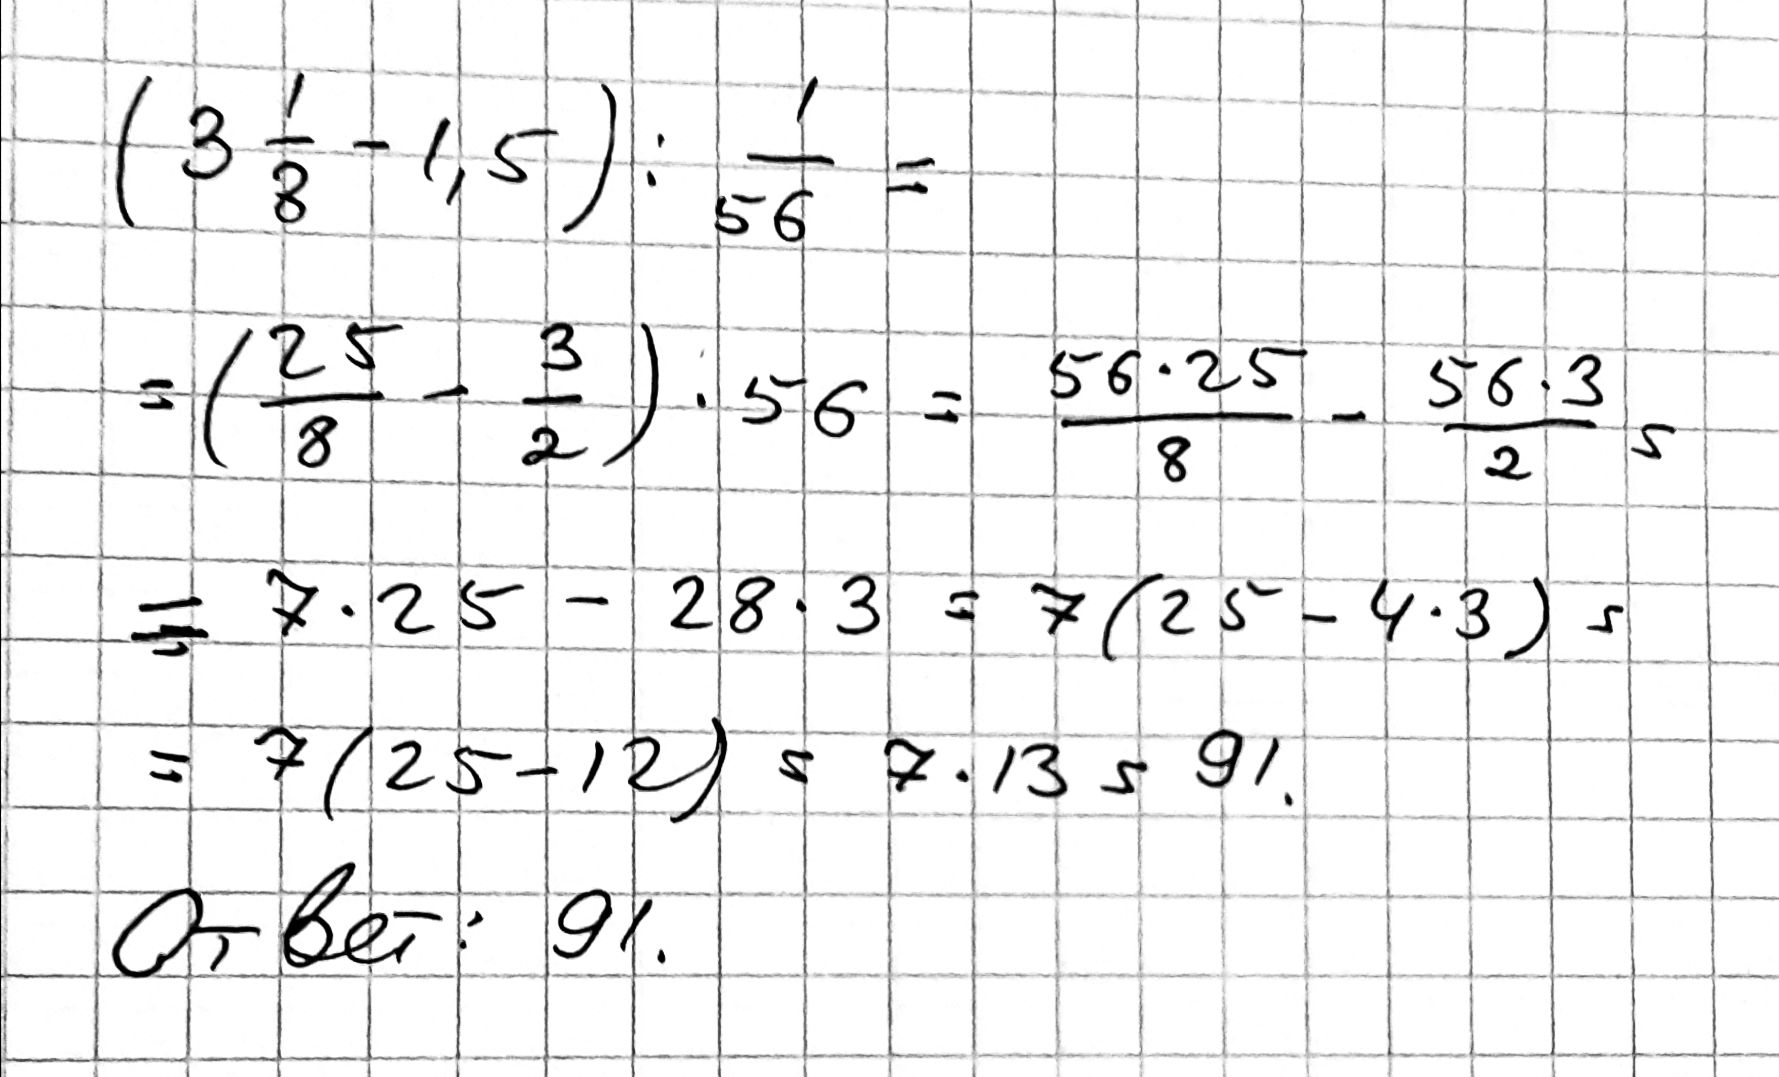 (3 1/8 - 1,5) : 1/56 =
= (25/8 - 3/2) · 56 = 56·25/8 - 56·3/2 =
= 7·25 - 28·3 = 7(25 - 4·3) =
= 7(25-12) = 7·13 = 91.
Ответ: 91.